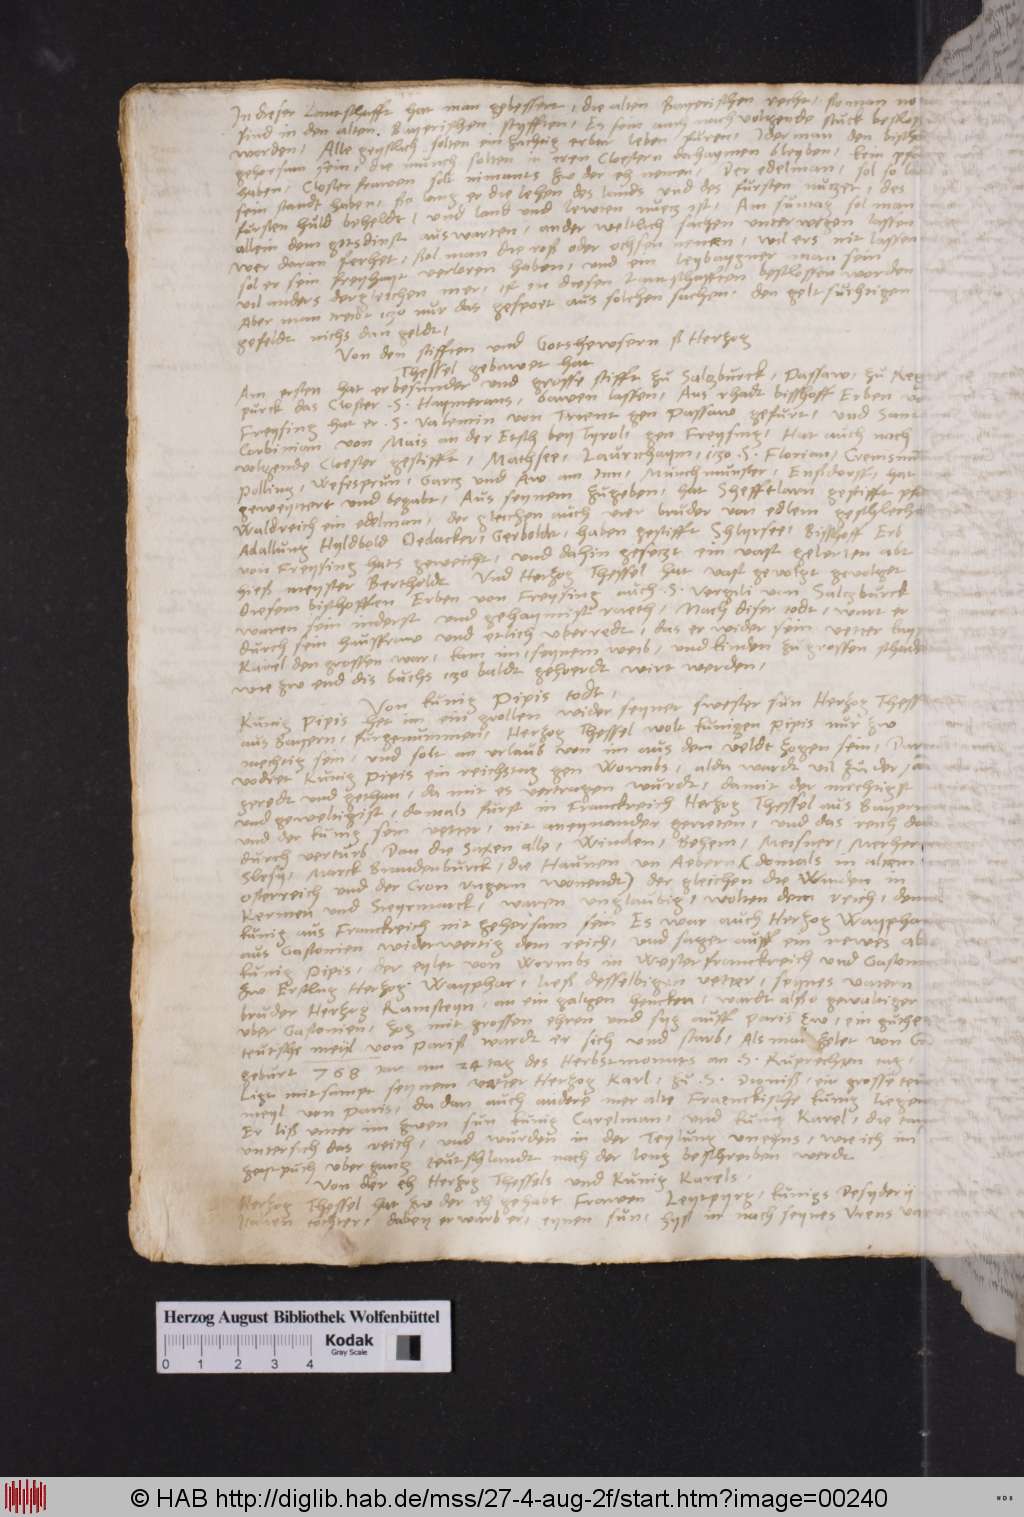 In dieser Lantschafft hat man gebessert, die alten Bayerischen recht, so man no
sind in den alten, Bayerischen, styfften, Es sein auch nach volgende stuck beschlos
worden, Alle geystlich solten ein züchtig erbar leben füren, Jderman den bischo
gehorsam sein, die münch solten in iren Cloestern dahaymen bleyben, kein
haben, Closter frawen solt nimants zw der eh nemen, Der edelman, sol so lang
sein standt haben, so lang er die lehen des lands und des fürsten nutzet, des
fürsten huld beheldt, und land und lewten nuetz ist, Am suntag sol man
allein dem gotsdinst auswarten, ander weltlich sachen unterwegen lassen
wer daran ferhet, sol man die roß oder ochsen nemen, wil ers nit lassen
sol er sein freyhayt verloren haben, und ein leybaygner man sein
vil anders dergleichen mer, ist in diesen Lantschafften beschlossen worden
Aber man treibt itzo nur das gespoet aus solchen sachen, den geltsüchtigen
gefeldt nichs dan geldt,
Von den stifften und Gotshewsern so Hertzog
Thessel gebawet hat
Am ersten hat er besunder und grosse stifft zu Saltzburck, Passaw, zu Reg
purck das Closter .S. Haymerans, bawen lassen, Aus rhadt bisshoff Erben vo
Freysing hat er .S. Valentin von Trient gen Passaw gefürt, und Sant
Corbinian von Mais an der Etsch bey Tyrol, gen Freysing, Hat auch nach
volgende Cloester gestifft, Mathsee, Laurnhaym, itzo .S. Florian, Cremsmün
Polling, Wesesprun, Gartz und Aw am Inn, Münchmunster, Ensldorff, hat
geweytert und begabt, Aus seynem zugeben, hat Shefftlarn gestifft
Waldreich ein edelman, der gleichen auch vier bruder von edlem geschlecht
Adallung Hyldbold Oedacker, Gerboldt, haben gestifft Shlyrsee, Bisshoff Erb
von Freysing hats geweicht, und dahin gesetzt ein vast gelerten abt
hieß meyster Bertholdt Und Hertzog Thessel hat vast gevolgt gevolget
diesem bishoffen Erben von Freysing auch .S. Vergili von Saltzburck
waren sein inderst und gehaymist raeth, Nach diser todt, wart er
durch sein haussfraw und etlich uberredt, das er wider sein vetter kay
Karel den grossen war, kam im, seynem weib, und kinden zu grossen schad
wie zw end dis buchs itzo baldt gehoerdt wirt werden,
Von kunig Pipis todt,
Kunig Pipis het im ein grollen wider seyner swester sun Hertzog Thess
aus Bayern, fürgenummen, Hertzog Thessel wolt kunigen Pipis nur zw
mechtig sein, und solt an urlaub von im aus dem veldt zogen sein, Darum
vodret Kunig Pipis ein reichstag gen Wormbs, aldo wardt vil zu der
geredt und gethan, da mit es vertragen wurdt, damit der mechtigst
und geweltigist, domals fürst in Franckreich Hertzog Thessel aus Bayern
und der kunig sein vetter, nit aneynander gerieten, und das reich do
durch verturb Dan die Saxen alle, Winden, Behem, Meisner, Merher
Slesy, Marck Brandenburck, die Haunen un Aebern (domals in altem
osterreich und der Cron Ungern wonendt) der gleichen die Winden in
Kernten und Steyrmarck, waren unglaubig, wolten dem reich, dem
kunig aus Franckreich nit gehorsam sein Es war auch Hertzog Wayphar
aus Gastonien widerwertig dem reich, und saget auff ein newes ab
kunig Pipis, der eylet von Wormbs in Westerfranckreich und Gaston
zw Erstlug Hertzog Wayphar, ließ desselbigen vetter, seynes vatern
bruder Hertzog Ramsteyn, an ein galgen hencken, wardt also gewaltiger
uber Gastonien, zog mit grossen ehren und syg auff Paris zw, ein
teutsche meil von Pariß wardt er sich und starb, Als man zelet von
geburt 768 iar am 24 tag des Herbstmonats an .S. Ruprechten tag,
Ligt mitsampt seynem vatter Hertzog Karl, zu .S. Dionisß, ein grosse teu
meyl von Paris, da dan auch andere mer alte Franckische kunig liegen
Er liß unter im zwen sun kunig Carelman, und kunig Karel, die
untersich das reich, und wurden in der Teylung uneyns, wie ich im
zeytpuch uber gantz teutschlandt nach der leng beschreiben werdt
Von der eh Hertzog Thessels und Kunig Karels,
Hertzog Thessel hat zw der eh gehabt Frawen Leytpyrg, kunigs Desyderii
tochter, dabey erwarb er, eynen sun, hyß er nach seynes Urens
Herzog August Bibliothek Wolfenbüttel
Kodak
Gray Scale
0 1 2 3 4
© HAB http://diglib.hab.de/mss/27-4-aug-2f/start.htm?image=00240